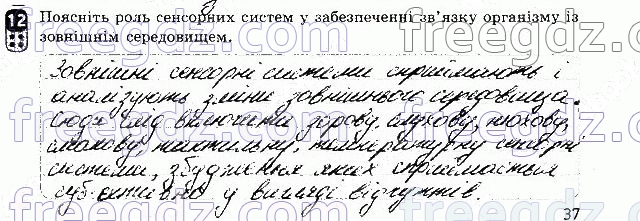 12 Поясніть роль сенсорних систем у забезпеченні зв'язку організму із
зовнішнім середовищем.
Зовнішні сенсорні системи сприймають і
аналізують зміни зовнішнього середовища.
Сюди слід включити зорову, слухову, нюхову,
смакову, тактильну, температурну сенсорні
системи, збудження яких сприймається
суб'єктивно у вигляді відчуттів.
37
freegdz.com freegdz.com